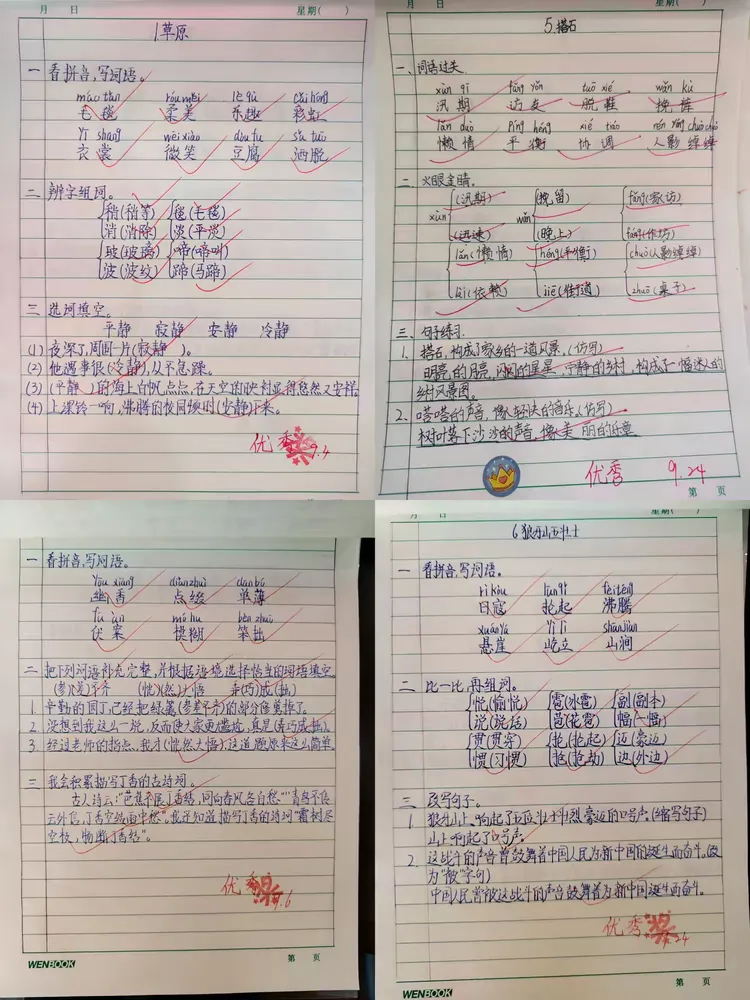 月 日 星期( )
1.草原
一 看拼音,写词语。
máo tǎn róu měi lè qù cǎi hóng
毛毯 柔美 乐趣 彩虹
yī shang wēi xiào dòu fu sǎ tuō
衣裳 微笑 豆腐 洒脱
二 辨字组词。
稍(稍等) 毯(毛毯)
消(消除) 淡(平淡)
玻(玻璃) 啼(啼叫)
波(波纹) 蹄(马蹄)
三 选词填空。
平静 寂静 安静 冷静
(1) 夜深了,周围一片(寂静)。
(2) 他遇事很(冷静),从不急躁。
(3) (平静)的海上白帆点点,在天空的映衬显得悠然又安祥。
(4) 上课铃一响,沸腾的校园顿时(安静)下来。
优秀 9.4
月 日 星期( )
5.搭石
一、词语过关.
xùn qī fǎng yǒu tuō xié wǎn kù
汛期 访友 脱鞋 挽裤
lǎn duò píng héng xié tiáo rén yǐng chuò chuò
懒惰 平衡 协调 人影绰绰
二、火眼金睛.
xùn (汛期) wǎn (挽留) fǎng(家访)
(迅速) (晚上) fāng(作坊)
lǎn(懒惰) héng(平衡) chuò(人影绰绰)
lài(依赖) jiē(街道) zhuō(桌子)
三、句子练习.
1. 搭石,构成了家乡的一道风景。(仿写)
明亮的月亮,闪闪的星星,宁静的乡村,构成了一幅迷人的
乡村风景图。
2. 嗒嗒的声音,像轻快的音乐。(仿写)
树叶落下沙沙的声音,像美丽的乐章
优秀 9.24
第 页
一 看拼音,写词语。
yōu xiāng diǎn zhuì dān bó
幽香 点缀 单薄
fú àn mó hu bèn zhuō
伏案 模糊 笨拙
二 把下列词语补充完整,并根据语境选择恰当的词语填空
(参)(差)不齐 (恍)(然)大悟 弄(巧)成(拙)
1. 辛勤的园丁,已经把绿篱(参差不齐)的部分修剪掉了。
2. 没想到我这么一说,反而使大家更尴尬,真是(弄巧成拙)。
3. 经过老师的指点,我才(恍然大悟),这道题原来这么简单。
三 我会积累描写丁香的古诗词。
古人诗云:“芭蕉不展丁香结,同向春风各自愁”“青鸟不传
云外信,丁香空结雨中愁”。我还知道描写丁香的诗词“霜树尽
空枝,肠断丁香结”。
优秀 9.6
WENBOOK 第 页
月 日 星期( )
6.狼牙山五壮士
一 看拼音,写词语。
rì kòu lūn qǐ fèi téng
日寇 抡起 沸腾
xuán yá yì lì shān jiàn
悬崖 屹立 山涧
二 比一比,再组词。
悦(愉悦) 雹(冰雹) 副(副本)
说(说话) 苞(花苞) 幅(一幅)
贯(贯穿) 抡(抡起) 迈(豪迈)
惯(习惯) 抢(抢劫) 边(外边)
三 改写句子。
1. 狼牙山上,响起了五位壮士壮烈豪迈的口号声。(缩写句子)
山上响起了口号声。
2. 这战斗的声音曾鼓舞着中国人民为新中国的诞生而奋斗。(改
为“被”字句)
中国人民曾被这战斗的声音鼓舞着为新中国诞生而奋斗。
优秀 9.24
WENBOOK 第 页